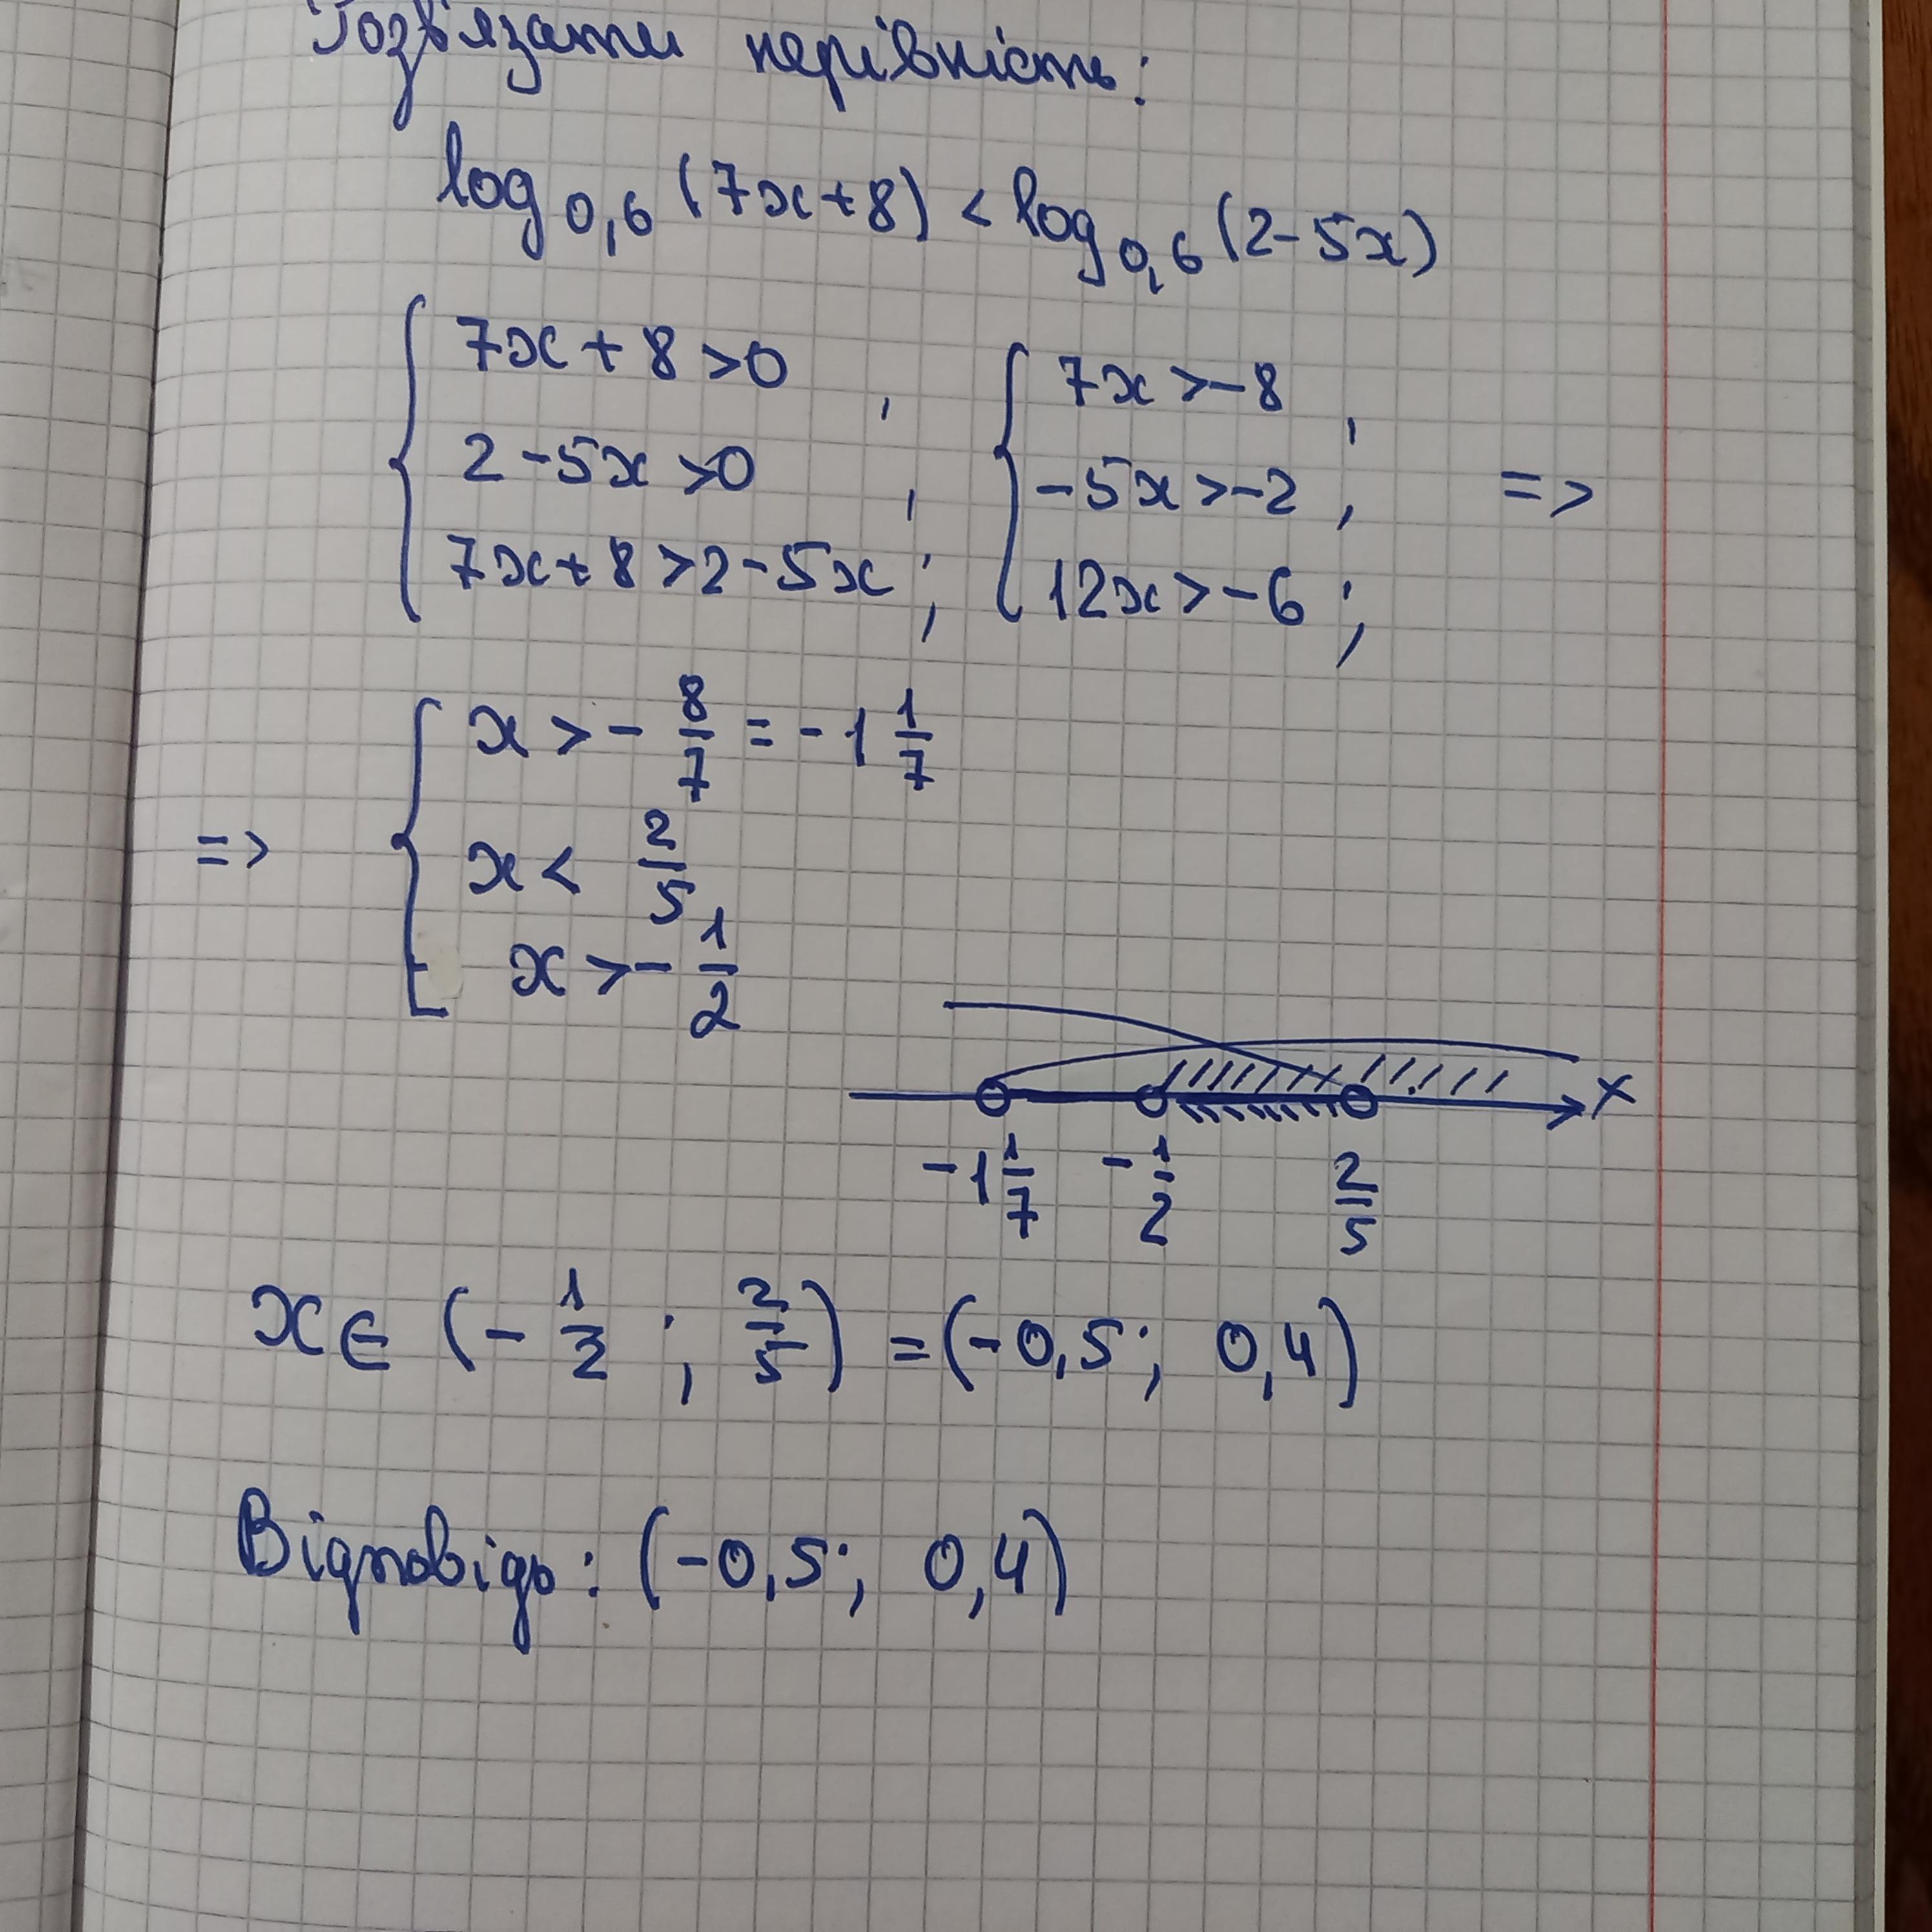 Розв'язати нерівність:
log₀,₆ (7x+8) < log₀,₆ (2-5x)
{ 7x+8>0 , { 7x>-8 ,
2-5x>0 , -5x>-2 , =>
7x+8>2-5x ; 12x>-6 ;
{ x>-8/7 = -1 1/7
=> x< 2/5
x>-1/2
x
-1 1/7 -1/2 2/5
x∈ (-1/2 ; 2/5) = (-0,5; 0,4)
Відповідь: (-0,5; 0,4)